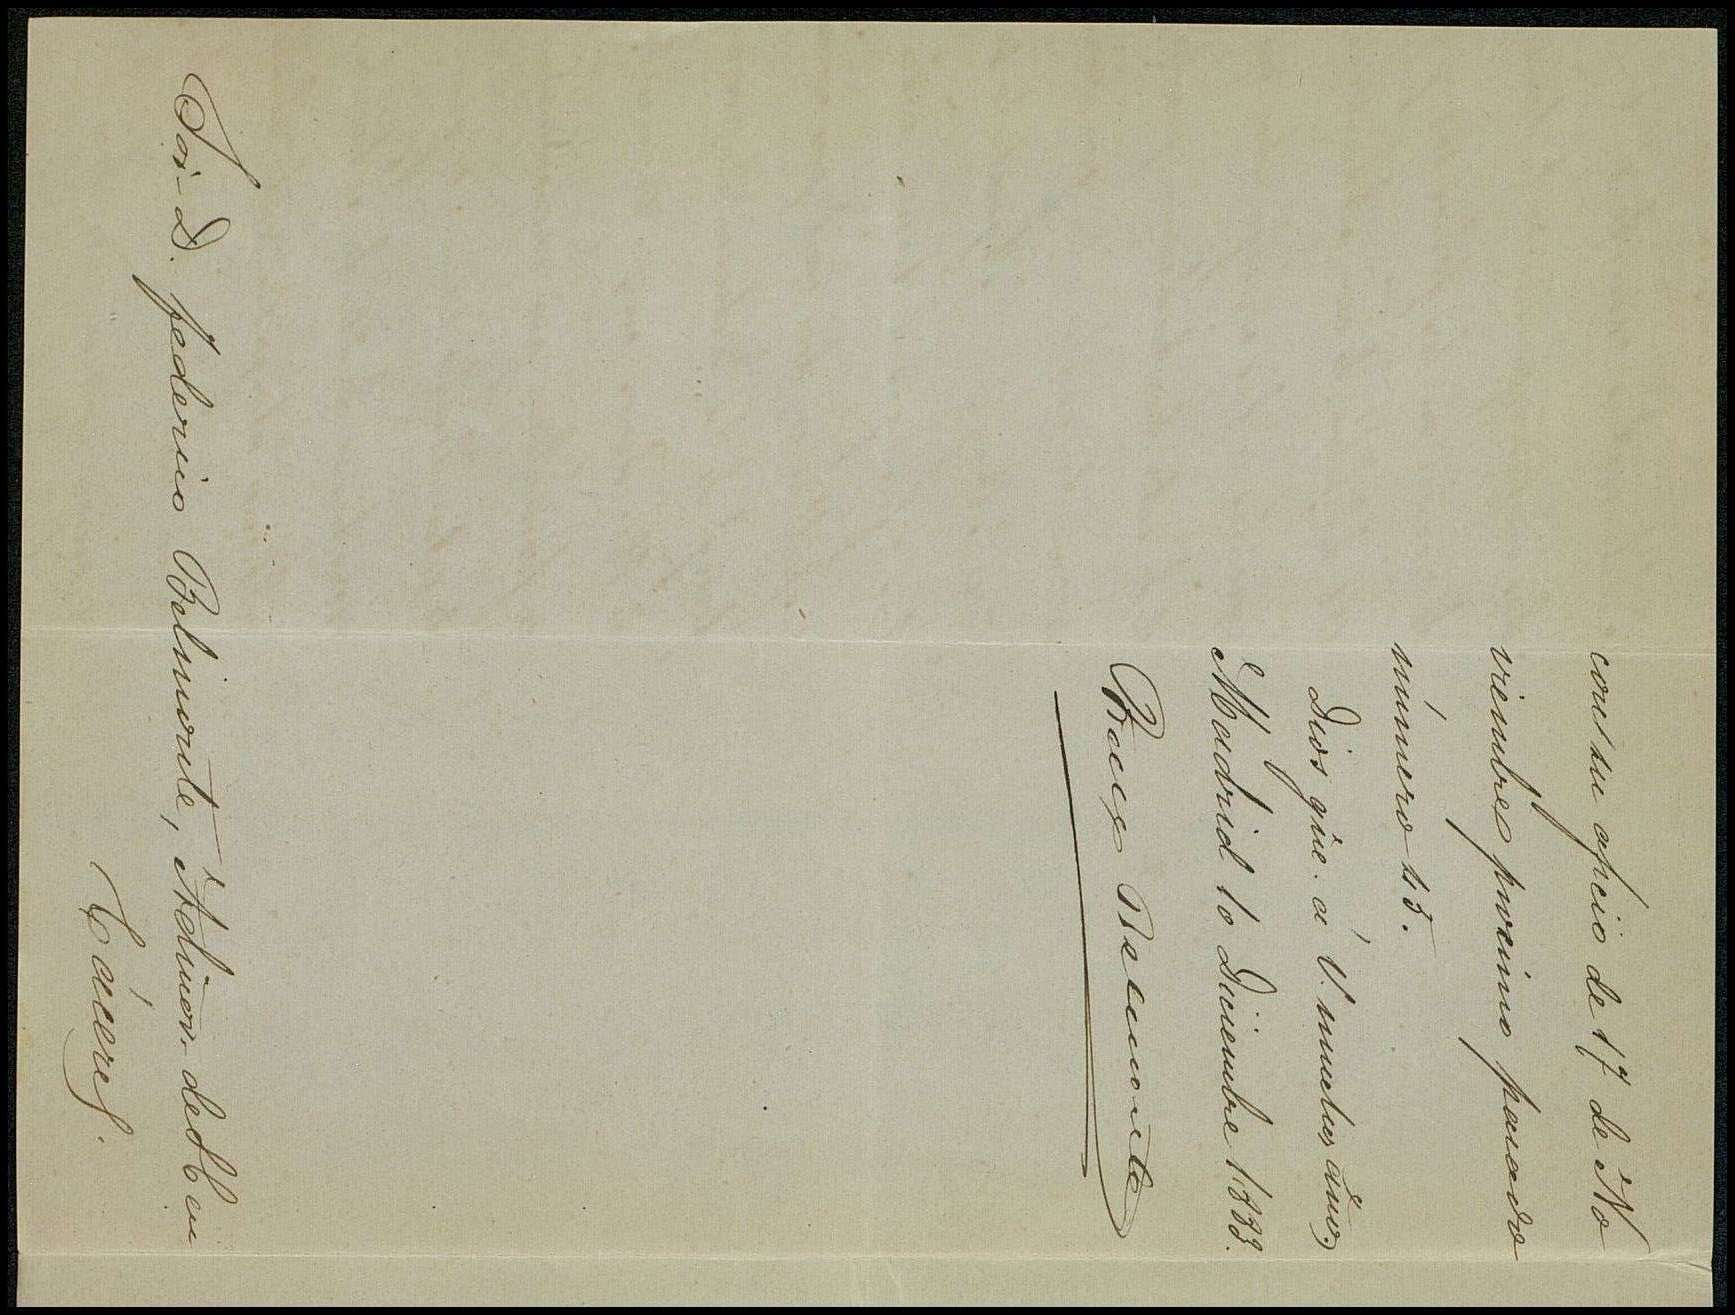 con su oficio de 17 de No
viembre procsimo pasado
número 45.
Dios gue. á V. muchos años.
Madrid 10 Diciembre 1883.
Belmonte
Sor. D. Federico Belmonte, Admor. de H en
Cáceres.